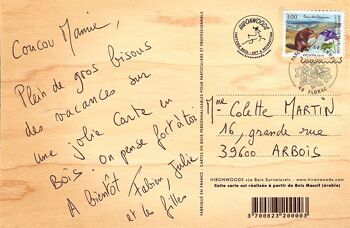 Coucou Mamie,
Plein de gros bisous
des vacances sur
une jolie carte en
bois. on pense fort à toi
A bientôt Fabien, Julie
et les filles
FABRIQUÉ EN FRANCE - CARTES EN BOIS PERSONNALISABLES POUR PARTICULIERS ET PROFESSIONNELS
HIRONWOODS
3,00
48 FLORAC
Mme Colette MARTIN
16, grande rue
39600 ARBOIS
HIRONWOODS «Le Bois Surnaturel» www.hironwoods.com
Cette carte est réalisée à partir de Bois Massif (érable)
3 700823 200003